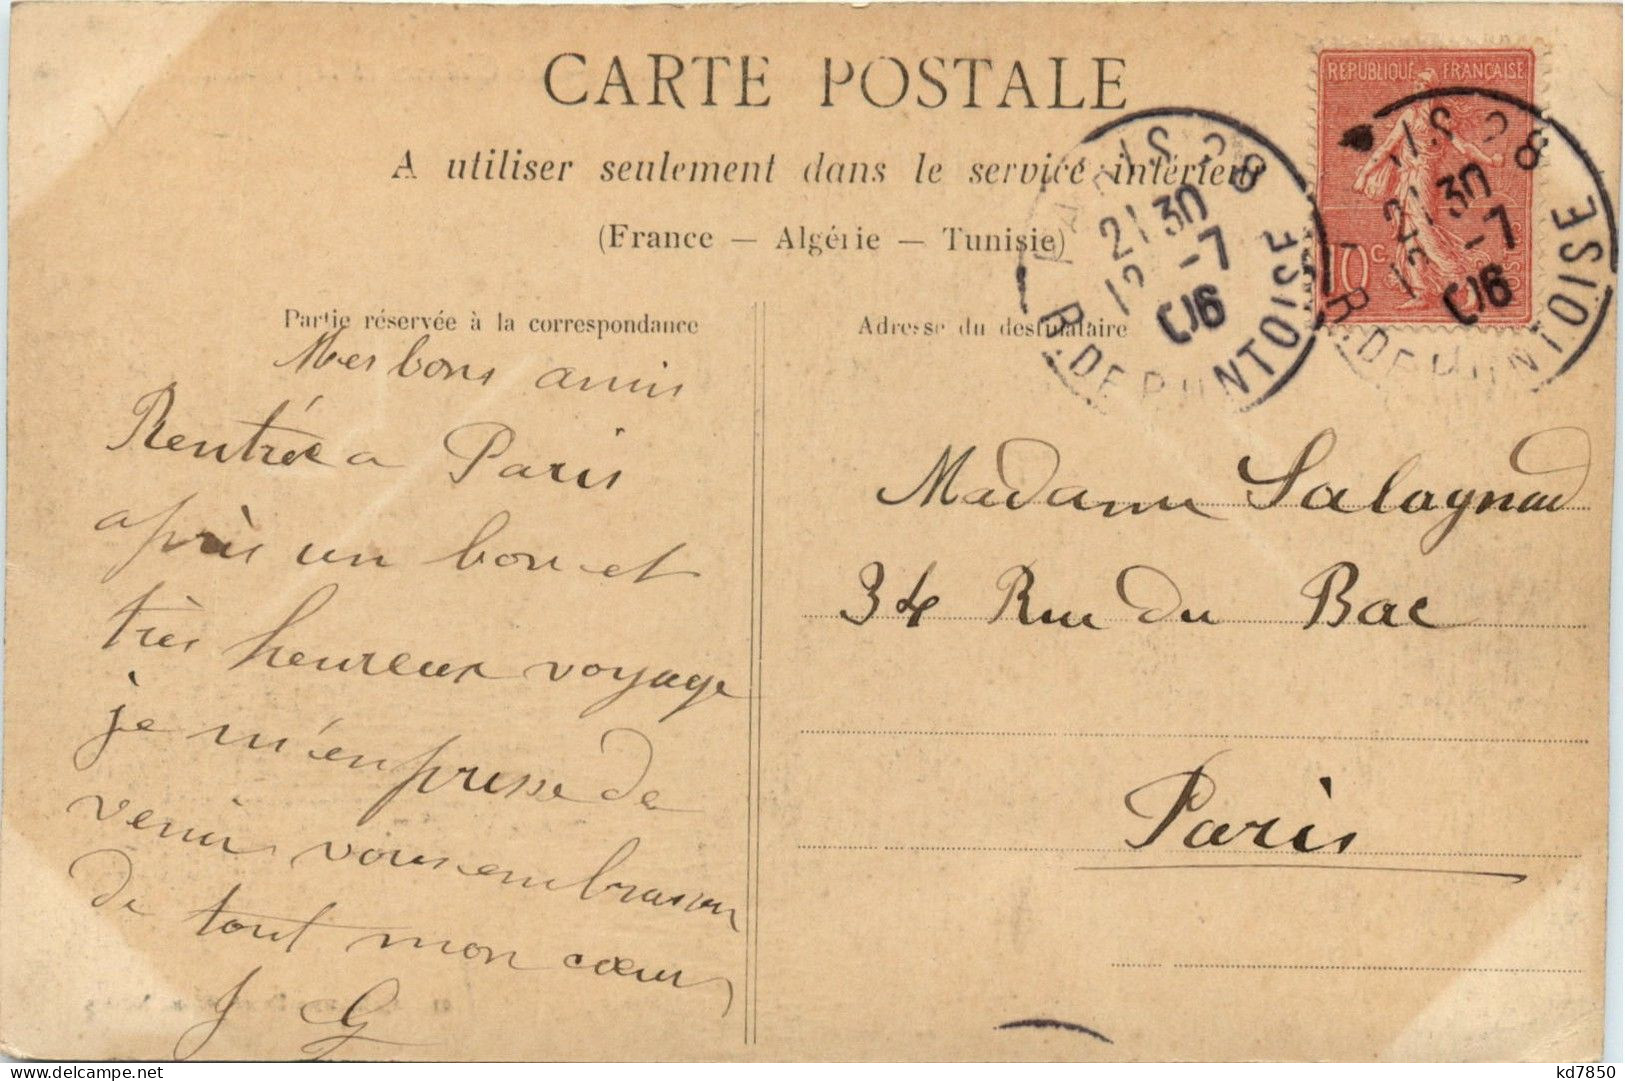 CARTE POSTALE
A utiliser seulement dans le service intérieur
(France — Algérie — Tunisie)
Partie réservée à la correspondance
Adresse du destinataire
Mes bons amis
Rentrée a Paris
après un bon et
très heureux voyage
je m'empresse de
venir vous embrasser
de tout mon cœur
J G
Madame Salagnad
34 Rue du Bac
Paris
REPUBLIQUE FRANÇAISE
10 c.
PARIS 28
21 30
12 -7
06
R. DE PONTOISE
28
21 30
12 -7
06
R. DE PONTOISE
kd7850